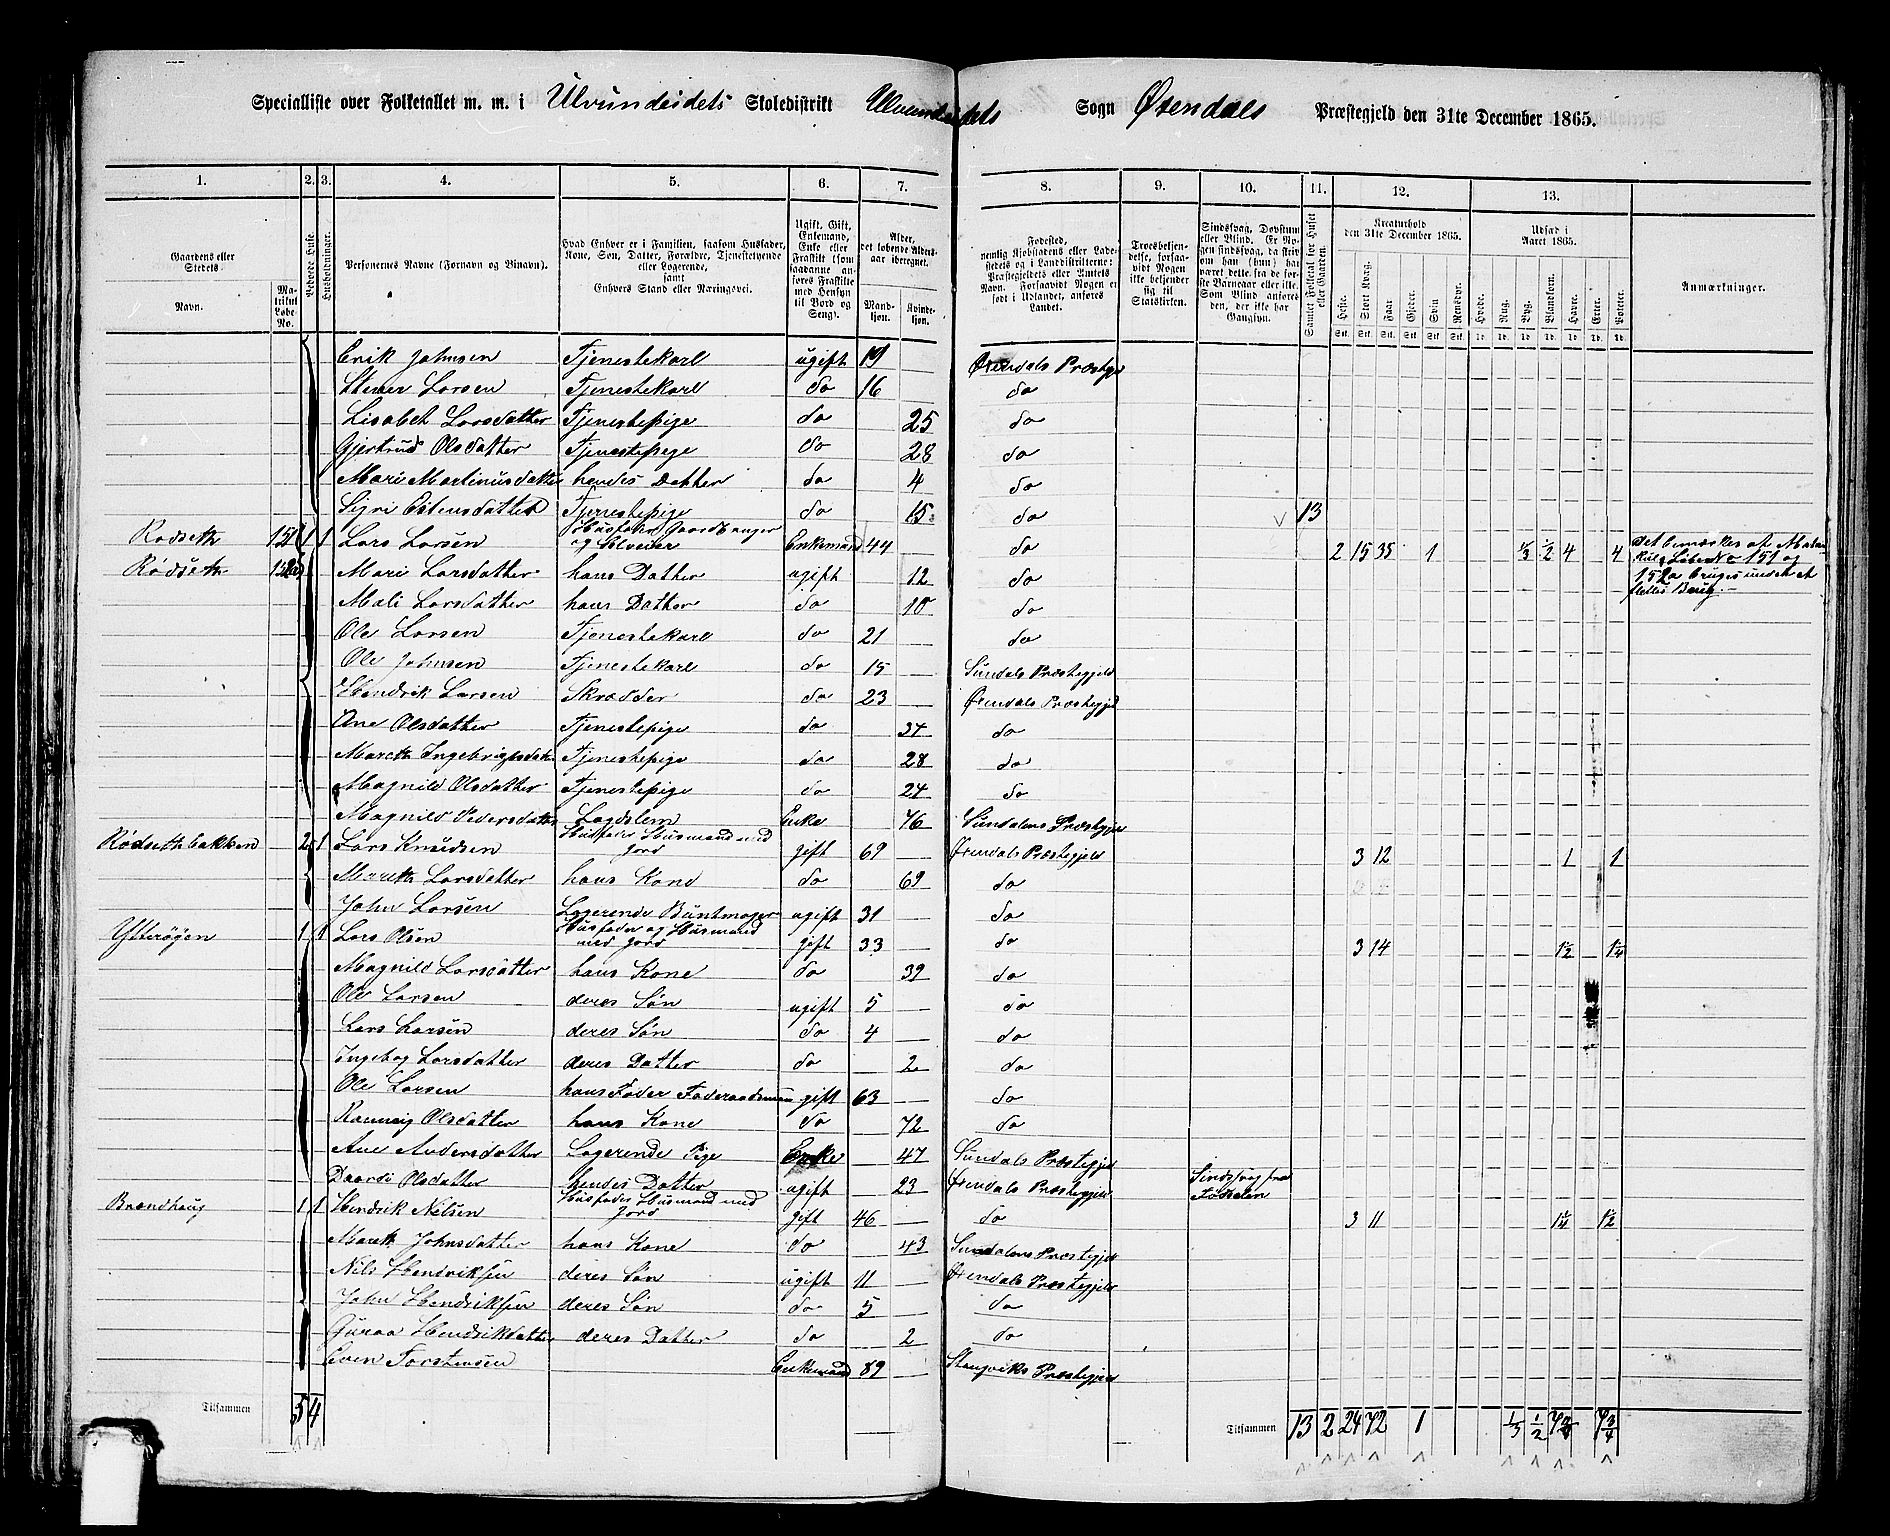 Specialliste over Folketallet m. m. i Ulvundeidets Skoledistrikt Ulvundeidets Sogn Øxendals Præstegjeld den 31te December 1865.
1. 2. 3. 4. 5. 6. 7. 8. 9. 10. 11. 12. 13.
Gaardens eller Stedets Navn. Matrikul Løbe-No. Beboede Huse. Husholdninger. Personernes Navne (Fornavn og Binavn). Hvad Enhver er i Familien, saasom Husfader, Kone, Søn, Datter, Forældre, Tjenestetyende eller Logerende, samt Enhvers Stand eller Næringsvei. Ugift, Gift, Enkemand, Enke eller Fraskilt (som saadanne anføres Fraskilte med Hensyn til Bord og Seng). Alder, det løbende Aldersaar iberegnet. Mandkjøn. Kvindekjøn. Fødested, nemlig Kjøbstadens eller Ladestedets og i Landdistrikterne: Præstegjeldets eller Amtets Navn. Forsaavidt Nogen er født i Udlandet, anføres Landet. Troesbekjendelse, forsaavidt Nogen ikke bekjender sig til Statskirken. Sindssvag, Døvstum eller Blind. Samlet Folketal for Huset eller Gaarden. Kreaturhold den 31te December 1865. Heste. Stort Kvæg. Faar. Gjeder. Svin. Rensdyr. Udsæd i Aaret 1865. Hvede. Rug. Byg. Blandkorn. Havre. Erter. Poteter. Anmærkninger.
Erik Johnsen Tjenestekarl ugift 19 Øxendals Præstegj
Steiner Larsen Tjenestekarl do 16 do
Lisabet Larsdatter Tjenestepige do 25 do
Gjertrud Olsdatter Tjenestepige do 28 do
Mari Martinusdatter hendes Datter do 4 do
Sigri Østensdatter Tjenestepige do 15 do 13
Rødseth 151 1 1 Lars Larsen Husfader Gaardbruger og Selveier Enkemand 44 do 2 15 35 1 1/3 1/2 4 4 Det bemærkes at Matri-
Rødseth 152a Mari Larsdatter hans Datter ugift 12 do kul Løbe No 151 og
152a bruges under et
Mali Larsdatter hans Datter do 10 do fælles Brug.
Ole Larsen Tjenestekarl do 21 do
Ole Johnsen Tjenestekarl do 15 Sundals Præstegjeld
Hendrik Larsen Skrædder do 23 Øxendals Præstegjeld
Ane Olsdatter Tjenestepige do 34 do
Mareth Ingebrigtsdatter Tjenestepige do 28 do
Magnild Olsdatter Tjenestepige do 24 do
Magnild Pedersdatter Lægdslem Enke 76 Sundalens Præstegjeld
Rødsethbakken 2 1 Lars Knudsen Husfader Husmand med Jord gift 69 Øxendals Præstegjeld 3 12 1 1
Mareth Larsdatter hans Kone do 69 do
John Larsen Logerende Buntmager ugift 31 do
Ytterøyen 1 1 Lars Olsen Husfader og Husmand med Jord gift 33 do 3 14 1 1/2 1 1/4
Magnild Larsdatter hans Kone do 39 do
Ole Larsen deres Søn ugift 5 do
Lars Larsen deres Søn do 4 do
Ingebog Larsdatter deres Datter do 2 do
Ole Larsen hans Fader Føderaadsmand gift 63 do
Ranneig Olsdatter hans Kone do 72 do
Ane Andersdatter Logerende Pige Enke 47 Sundals Præstegjeld
Daardi Olsdatter hendes Datter ugift 23 Øxendals Præstegjeld Sindssvag fra Fødselen
Brandhaug 1 1 Hendrik Nilsen Husfader Husmand med Jord gift 46 do 3 11 1 1/4 1 1/2
Mareth Johnsdatter hans Kone do 43 Sundalens Præstegjeld
Nils Hendriksen deres Søn ugift 11 Øxendals Præstegjeld
John Hendriksen deres Søn do 5 do
Guraa Hendriksdatter deres Datter do 2 do
Even Torstensen Enkemand 89 Stangviks Præstegjeld
Tilsammen 5 4 Tilsammen 13 2 24 72 1 1/3 1/2 7 3/4 7 3/4